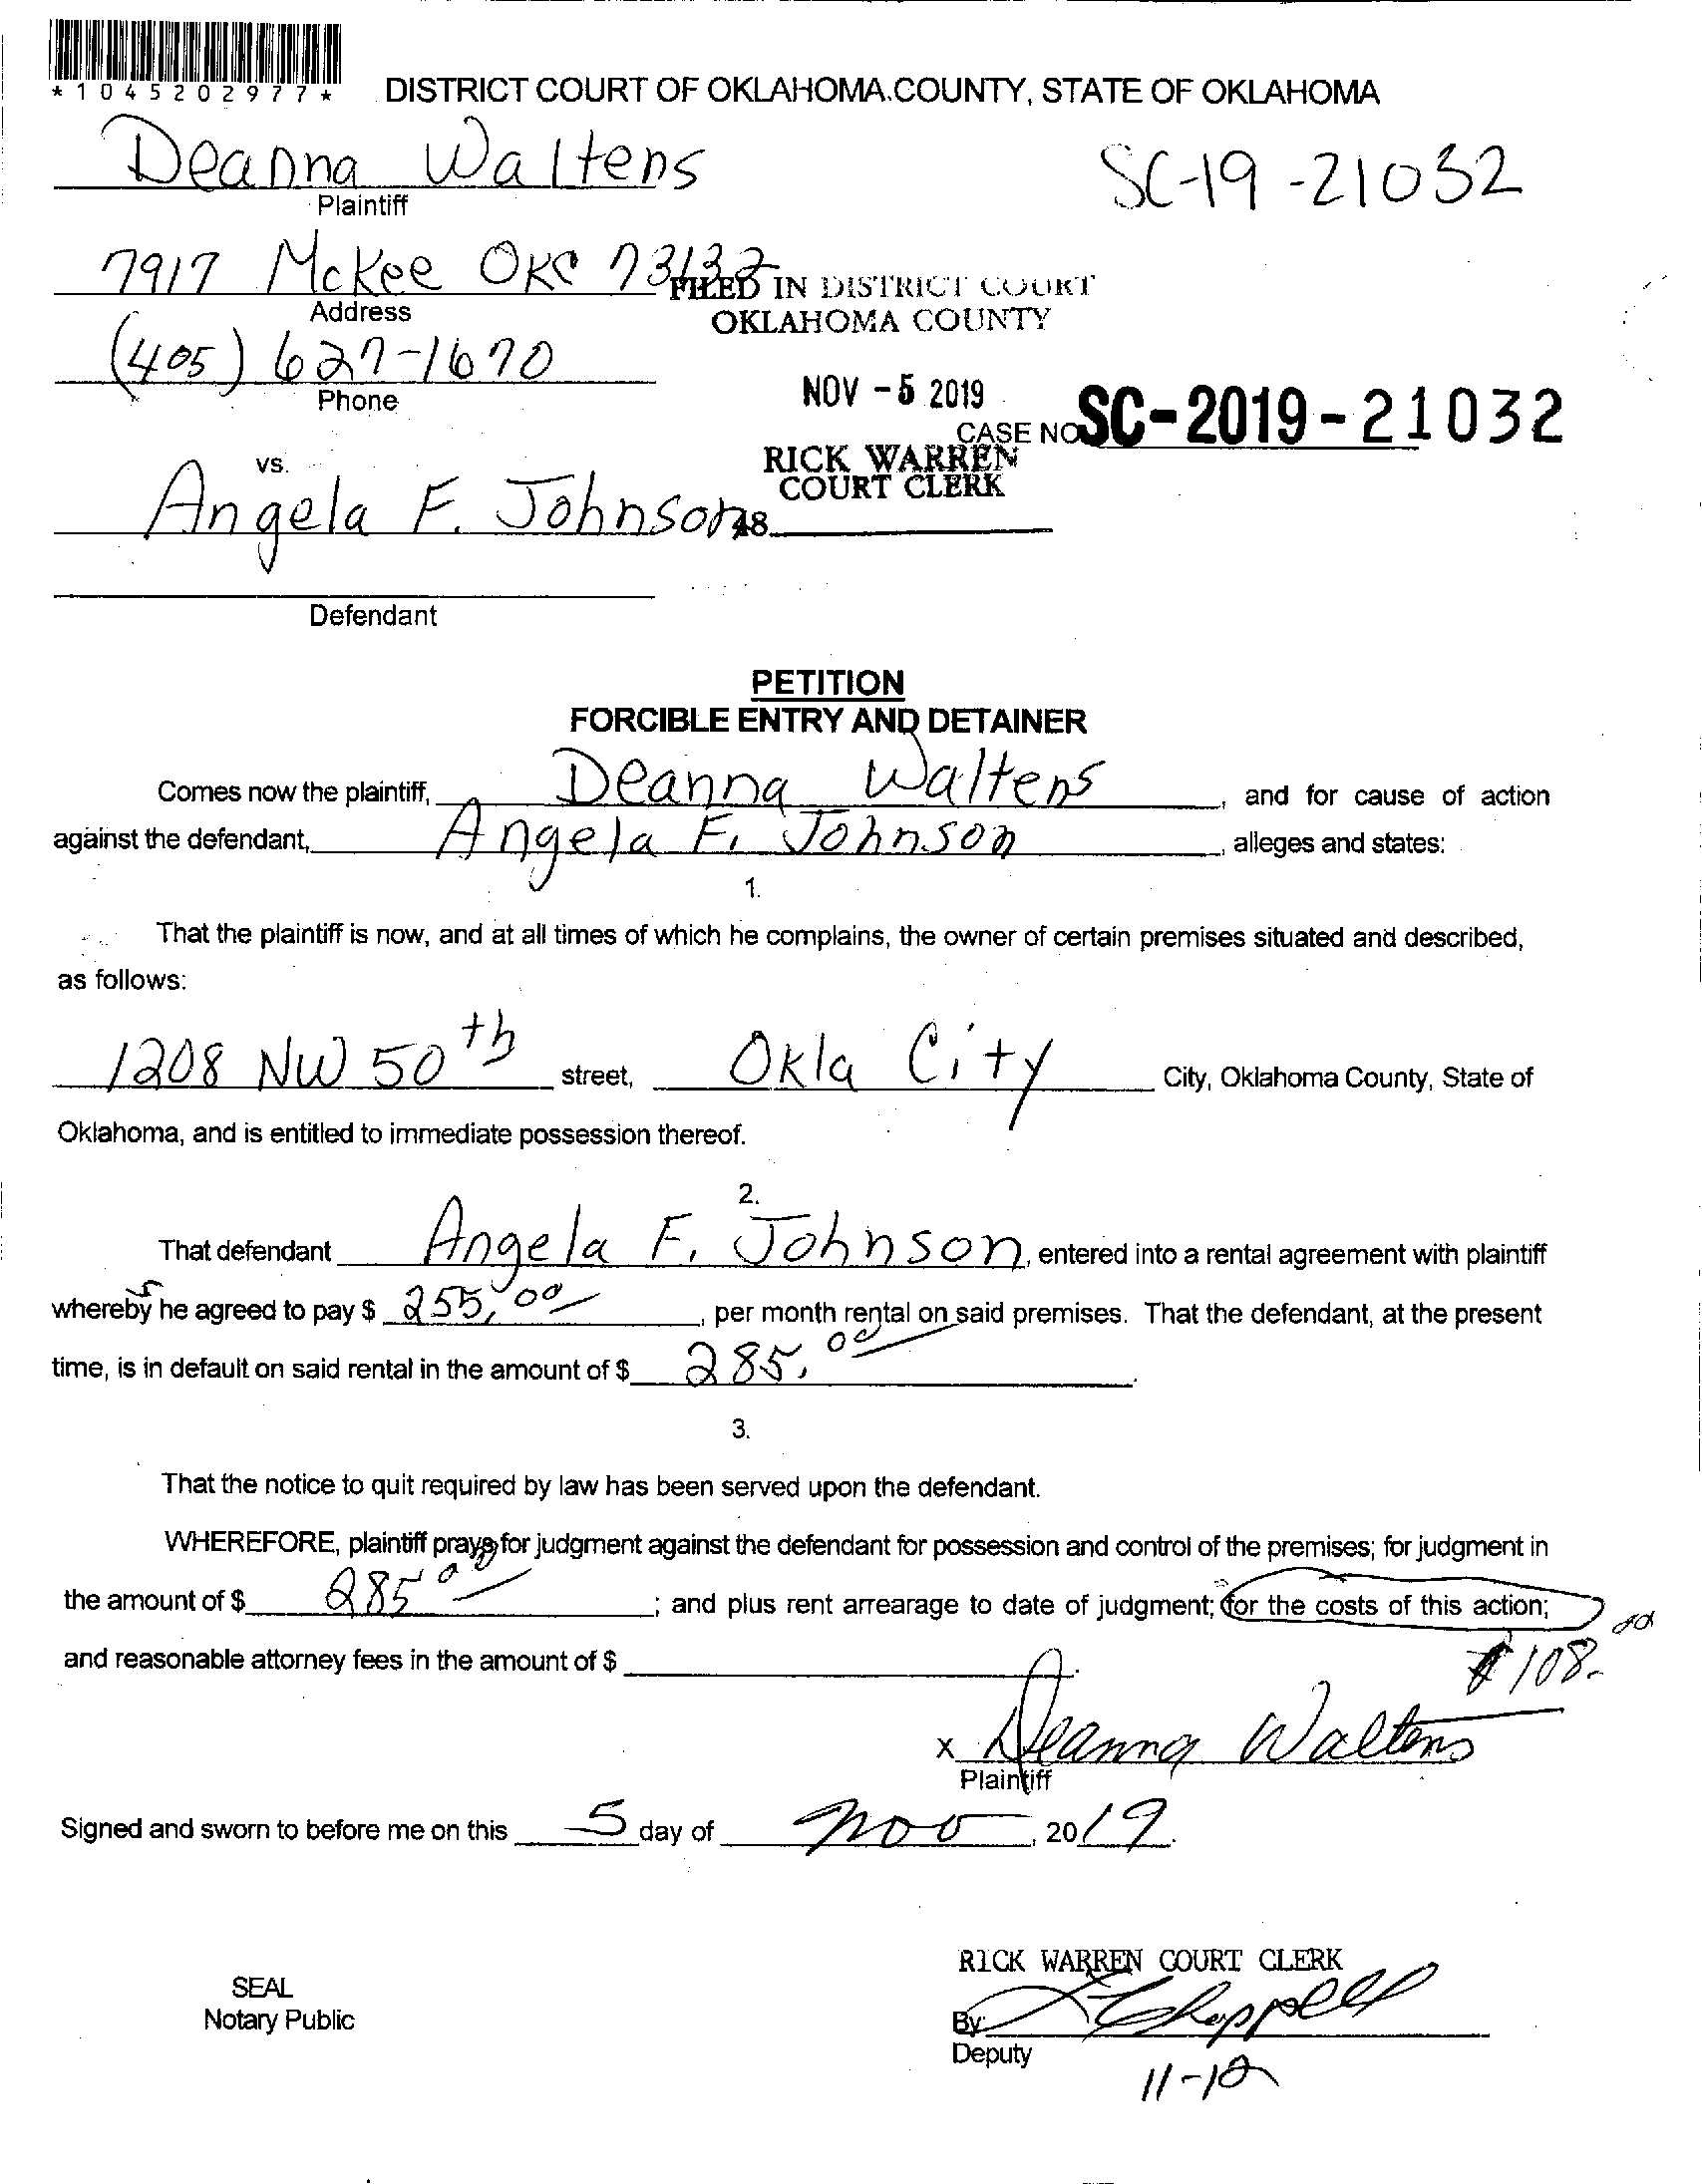 *1045202977*
DISTRICT COURT OF OKLAHOMA COUNTY, STATE OF OKLAHOMA
Deanna Waltens
SC-19-21032
Plaintiff
7917 McKee OKC 73132
FILED IN DISTRICT COURT
Address
OKLAHOMA COUNTY
(405) 627-1670
Phone
NOV - 5 2019
CASE NO SC-2019-21032
vs.
RICK WARREN
COURT CLERK
Angela F. Johnson
48.
Defendant
PETITION
FORCIBLE ENTRY AND DETAINER
Comes now the plaintiff, Deanna Waltens, and for cause of action
against the defendant, Angela F. Johnson, alleges and states:
1.
That the plaintiff is now, and at all times of which he complains, the owner of certain premises situated and described,
as follows:
1208 NW 50th street, Okla City City, Oklahoma County, State of
Oklahoma, and is entitled to immediate possession thereof.
2.
That defendant Angela F. Johnson, entered into a rental agreement with plaintiff
whereby he agreed to pay $ 255.00, per month rental on said premises. That the defendant, at the present
time, is in default on said rental in the amount of $ 285.00.
3.
That the notice to quit required by law has been served upon the defendant.
WHEREFORE, plaintiff prays for judgment against the defendant for possession and control of the premises; for judgment in
the amount of $ 285 00; and plus rent arrearage to date of judgment; for the costs of this action;
and reasonable attorney fees in the amount of $
$108.00
x Deanna Waltens
Plaintiff
Signed and sworn to before me on this 5 day of Nov, 2019.
RICK WARREN COURT CLERK
SEAL
Notary Public
By: Chappell
Deputy
11-12